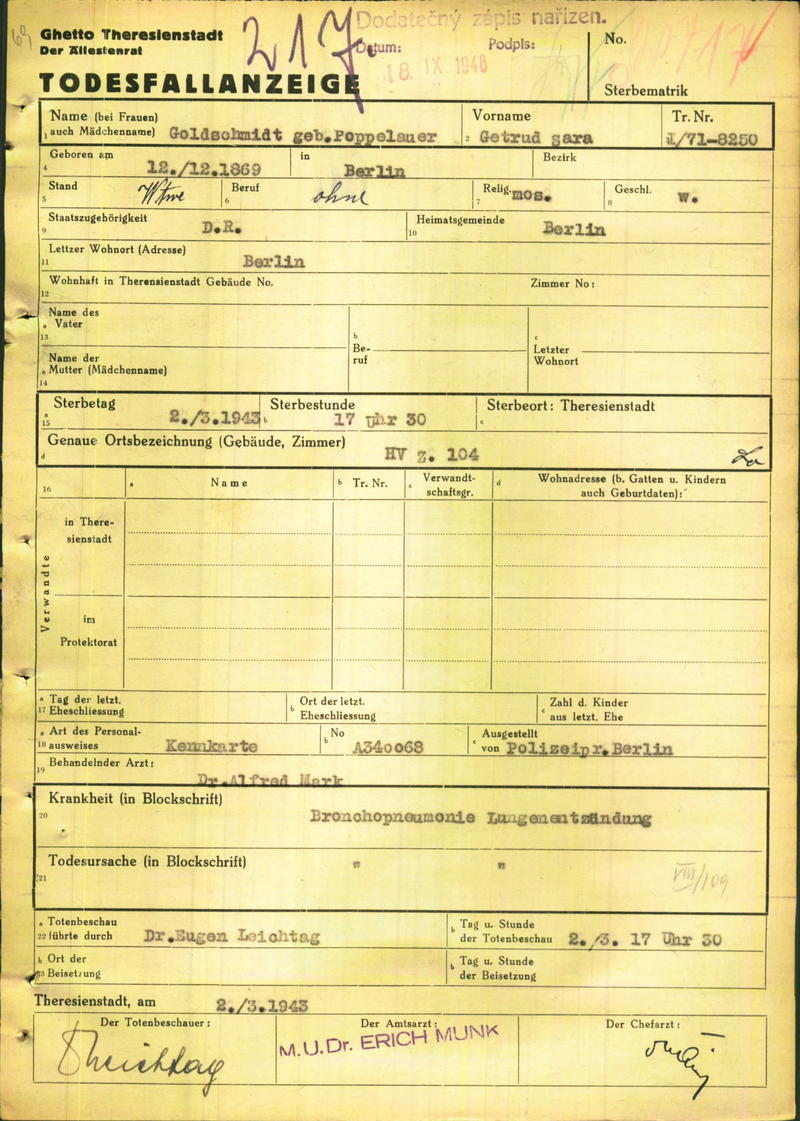 Ghetto Theresienstadt
Der Ältestenrat
217
Dodatečný zápis nařízen.
Datum:
Podpis:
18. IX. 1948
No.
TODESFALLANZEIGE
Sterbematrik
Name (bei Frauen)
1 auch Mädchenname) Goldschmidt geb.Poppelauer
Vorname
2 Getrud sara
Tr. Nr.
I/71-8250
Geboren am
4 12./12.1869
in
Berlin
Bezirk
Stand
5 Witwe
Beruf
6 ohne
Relig.
7 mos.
Geschl.
8 w.
Staatszugehörigkeit
9 D.R.
Heimatsgemeinde
10 Berlin
Lettzer Wohnort (Adresse)
11 Berlin
Wohnhaft in Therensienstadt Gebäude No.
12
Zimmer No:
Name des
a Vater
13
b
Be-
ruf
c
Letzter
Wohnort
Name der
a Mutter (Mädchenname)
14
Sterbetag
a
15 2./3.1943
Sterbestunde
b 17 Uhr 30
Sterbeort: Theresienstadt
c
Genaue Ortsbezeichnung (Gebäude, Zimmer)
d HV z. 104
16
a Name
b Tr. Nr.
c Verwandt-
schaftsgr.
d Wohnadresse (b. Gatten u. Kindern
auch Geburtdaten):
Verwandte
in There-
sienstadt
im
Protektorat
a Tag der letzt.
17 Eheschliessung
b Ort der letzt.
Eheschliessung
c Zahl d. Kinder
aus letzt. Ehe
a Art des Personal-
18 ausweises Kennkarte
b No
A340068
c Ausgestellt
von Polizeipr.Berlin
Behandelnder Arzt:
19 Dr.Alfred Mark
Krankheit (in Blockschrift)
20 Bronchopneumonie Lungenentzündung
Todesursache (in Blockschrift) " "
21
VIII/109
a Totenbeschau
22 führte durch Dr.Eugen Leichtag
b Tag u. Stunde
der Totenbeschau 2./3. 17 Uhr 30
b Ort der
23 Beisetzung
b Tag u. Stunde
der Beisetzung
Theresienstadt, am 2./3.1943
Der Totenbeschauer:
Der Amtsarzt:
Der Chefarzt:
Leichtag
M.U.Dr. ERICH MUNK